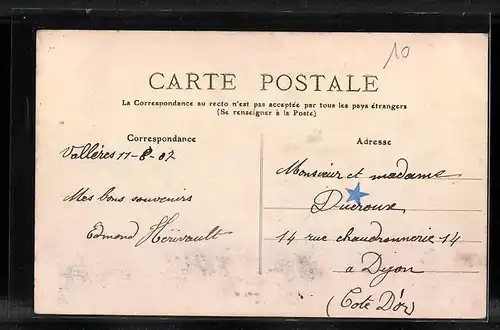 10
CARTE POSTALE
La Correspondance au recto n'est pas acceptée par tous les pays étrangers
(Se renseigner à la Poste)
Correspondance
Vallères 11-8-07
Mes bons souvenirs
Edmond Hérivault
Adresse
Monsieur et madame
Ducroux
14 rue chaudronnerie 14
a Dijon
(Cote D'or)